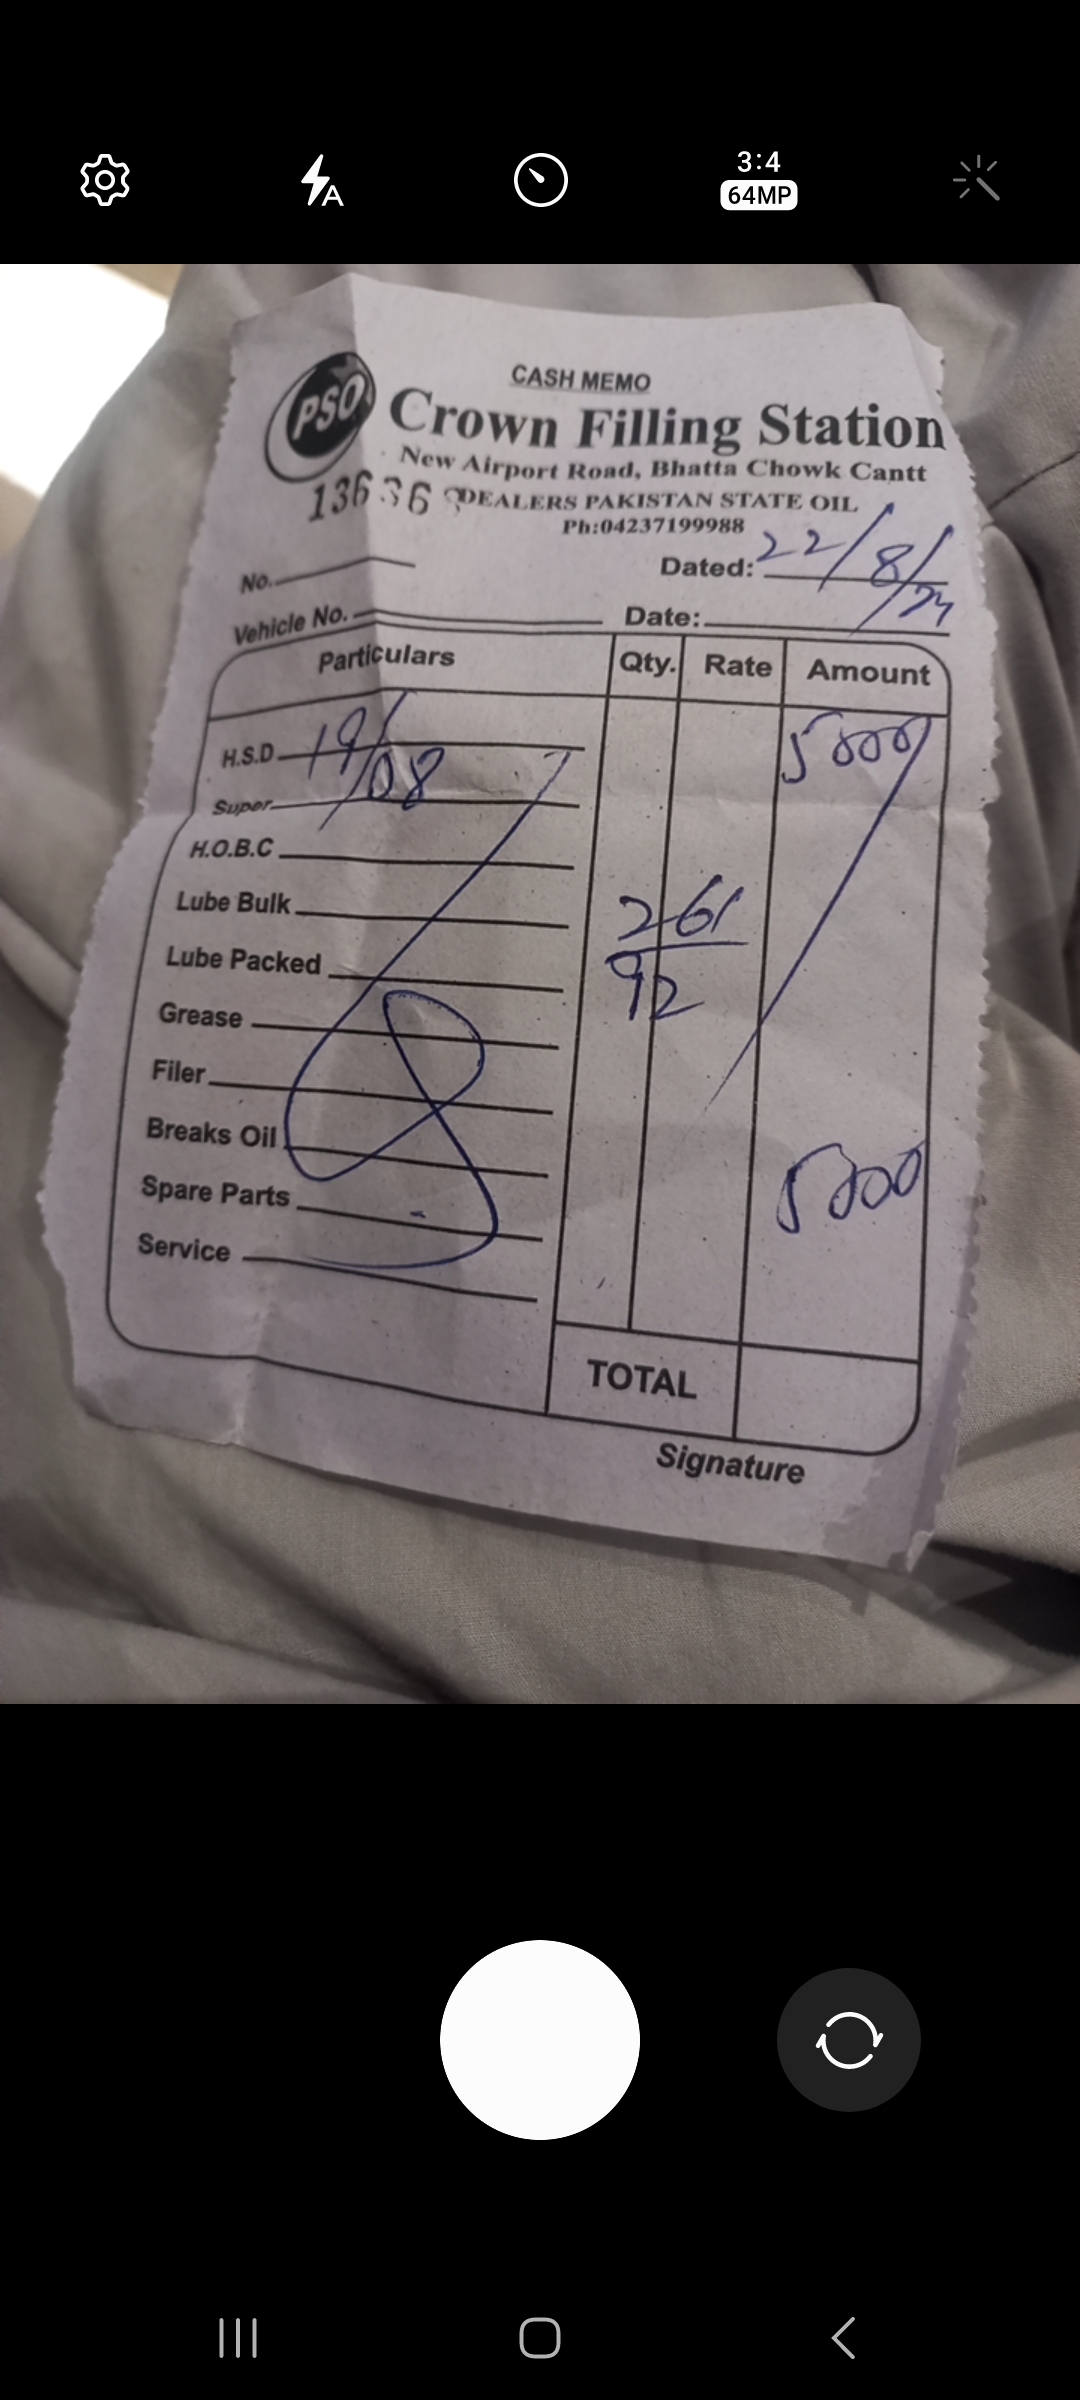 3:4
64MP
CASH MEMO
PSO
Crown Filling Station
New Airport Road, Bhatta Chowk Cantt
DEALERS PAKISTAN STATE OIL
Ph:04237199988
13636
No.
Dated: 22/8/24
Vehicle No.
Date:
Particulars Qty. Rate Amount
H.S.D 19/08 5000/
Super
H.O.B.C
Lube Bulk
261
Lube Packed
92
Grease
Filer
Breaks Oil
Spare Parts
5000
Service
TOTAL
Signature